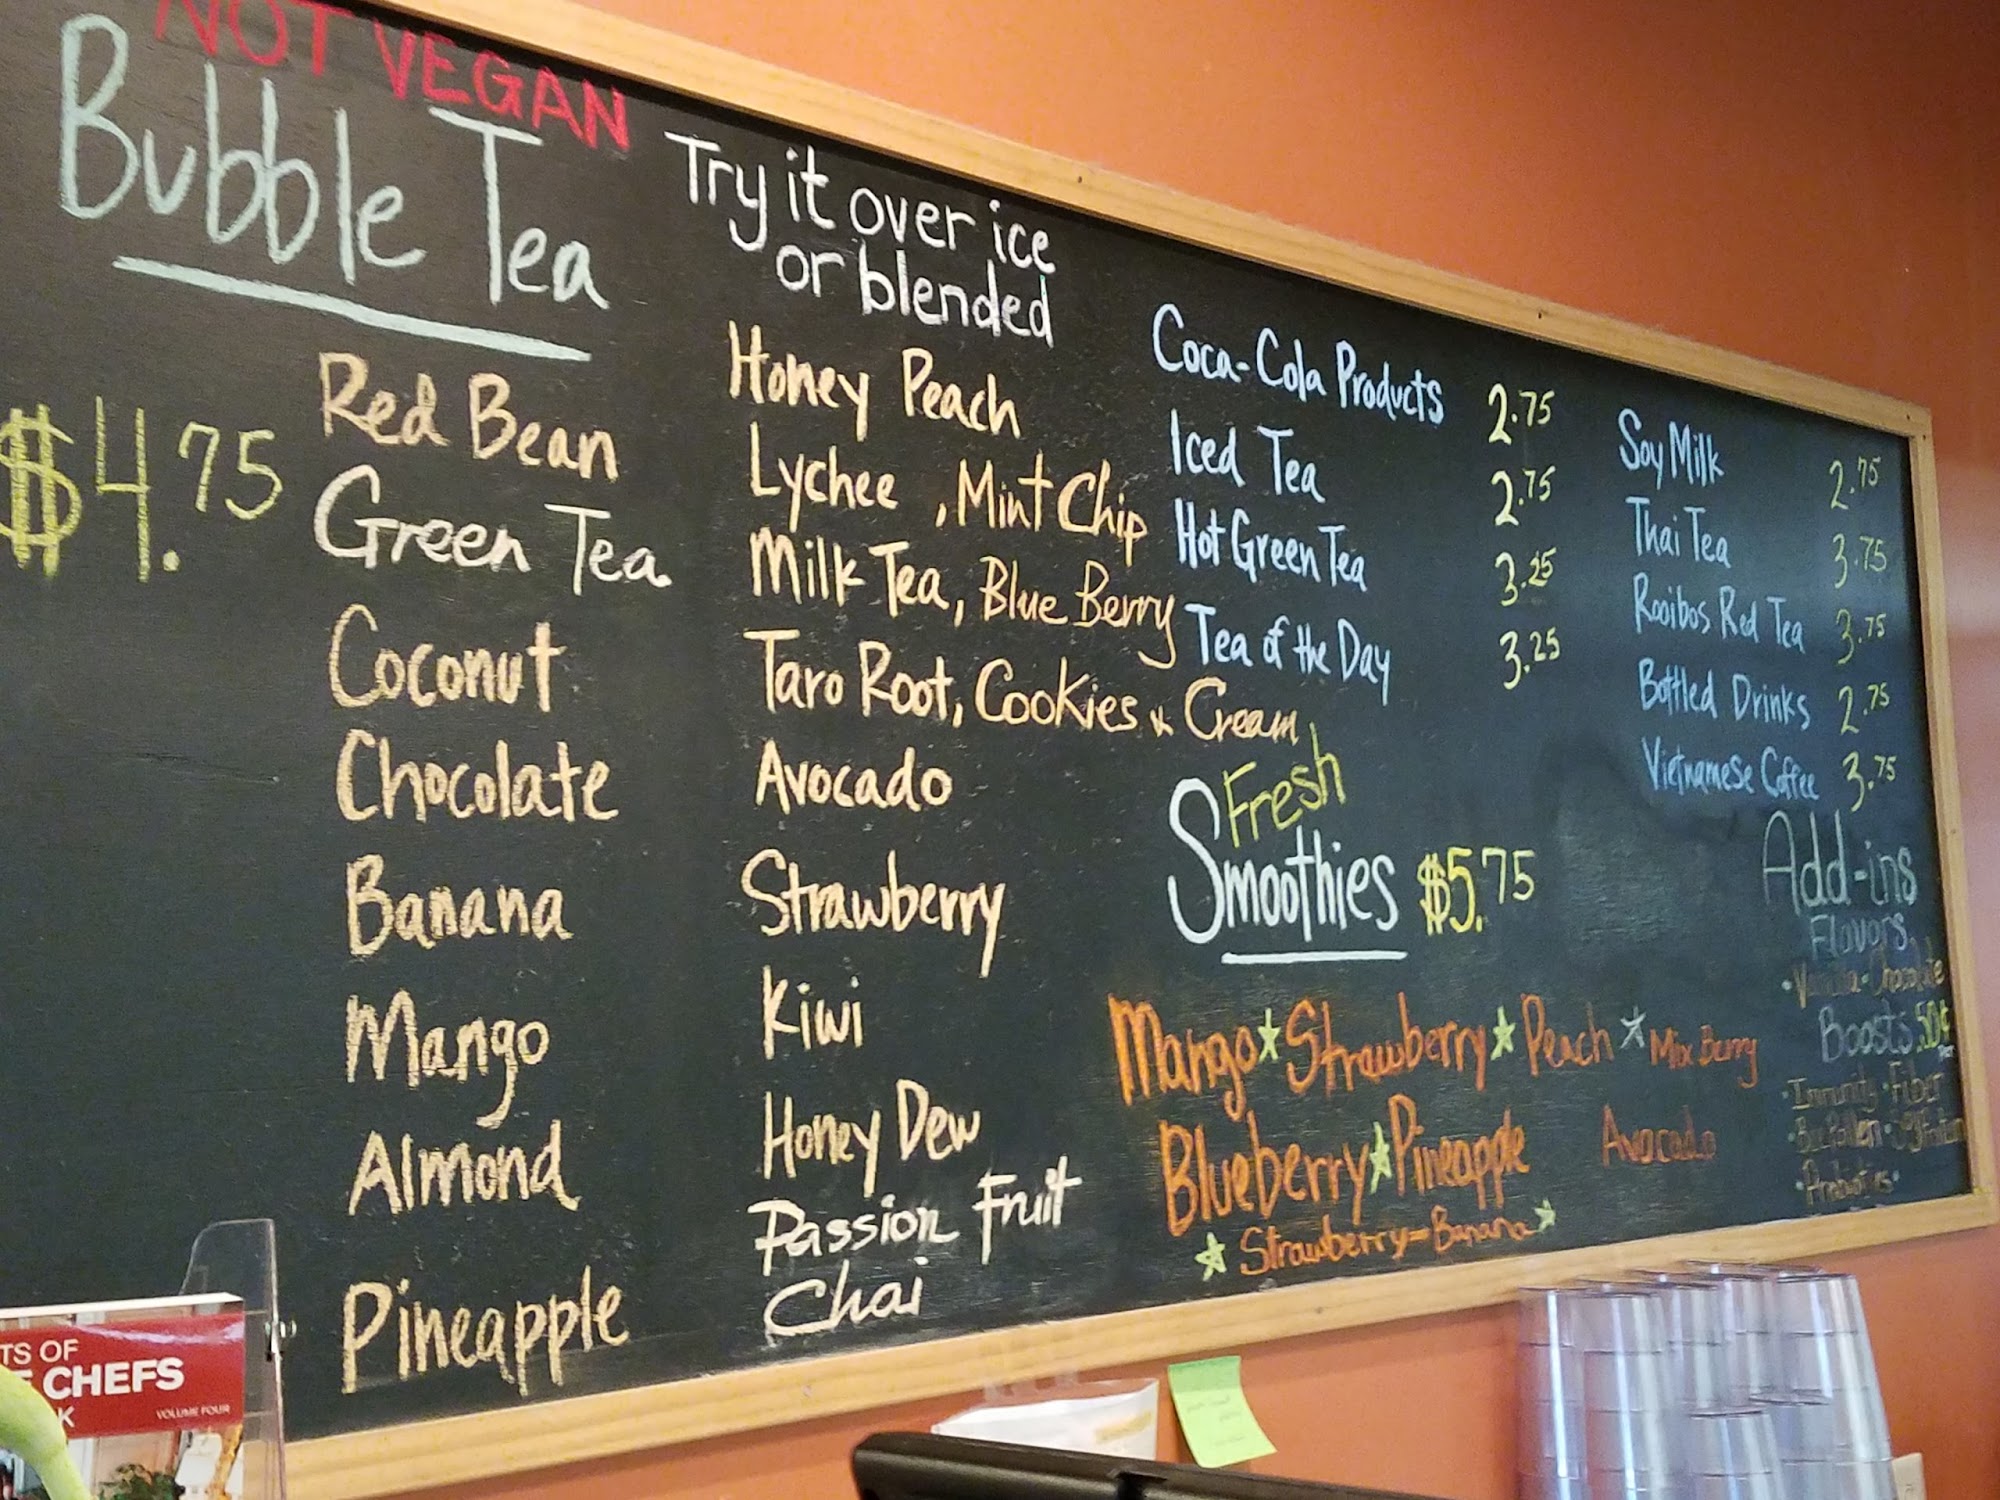 NOT VEGAN
Bubble Tea
$4.75
Red Bean
Green Tea
Coconut
Chocolate
Banana
Mango
Almond
Pineapple
Try it over ice
or blended
Honey Peach
Lychee, Mint Chip
Milk Tea, Blue Berry
Taro Root, Cookies & Cream
Avocado
Strawberry
Kiwi
Honey Dew
Passion Fruit
Chai
Coca-Cola Products 2.75
Iced Tea 2.75
Hot Green Tea 3.25
Tea of the Day 3.25
Soy Milk 2.75
Thai Tea 3.75
Rooibos Red Tea 3.75
Bottled Drinks 2.75
Vietnamese Coffee 3.75
Fresh
Smoothies $5.75
Mango ★ Strawberry ★ Peach ★ Mix Berry
Blueberry ★ Pineapple Avocado
★ Strawberry-Banana ★
Add-ins
Flavors
• Vanilla • Chocolate
Boosts .50¢
• Immunity • Fiber
• Bee Pollen •
• Probiotics •
TS OF
CHEFS
K
VOLUME FOUR